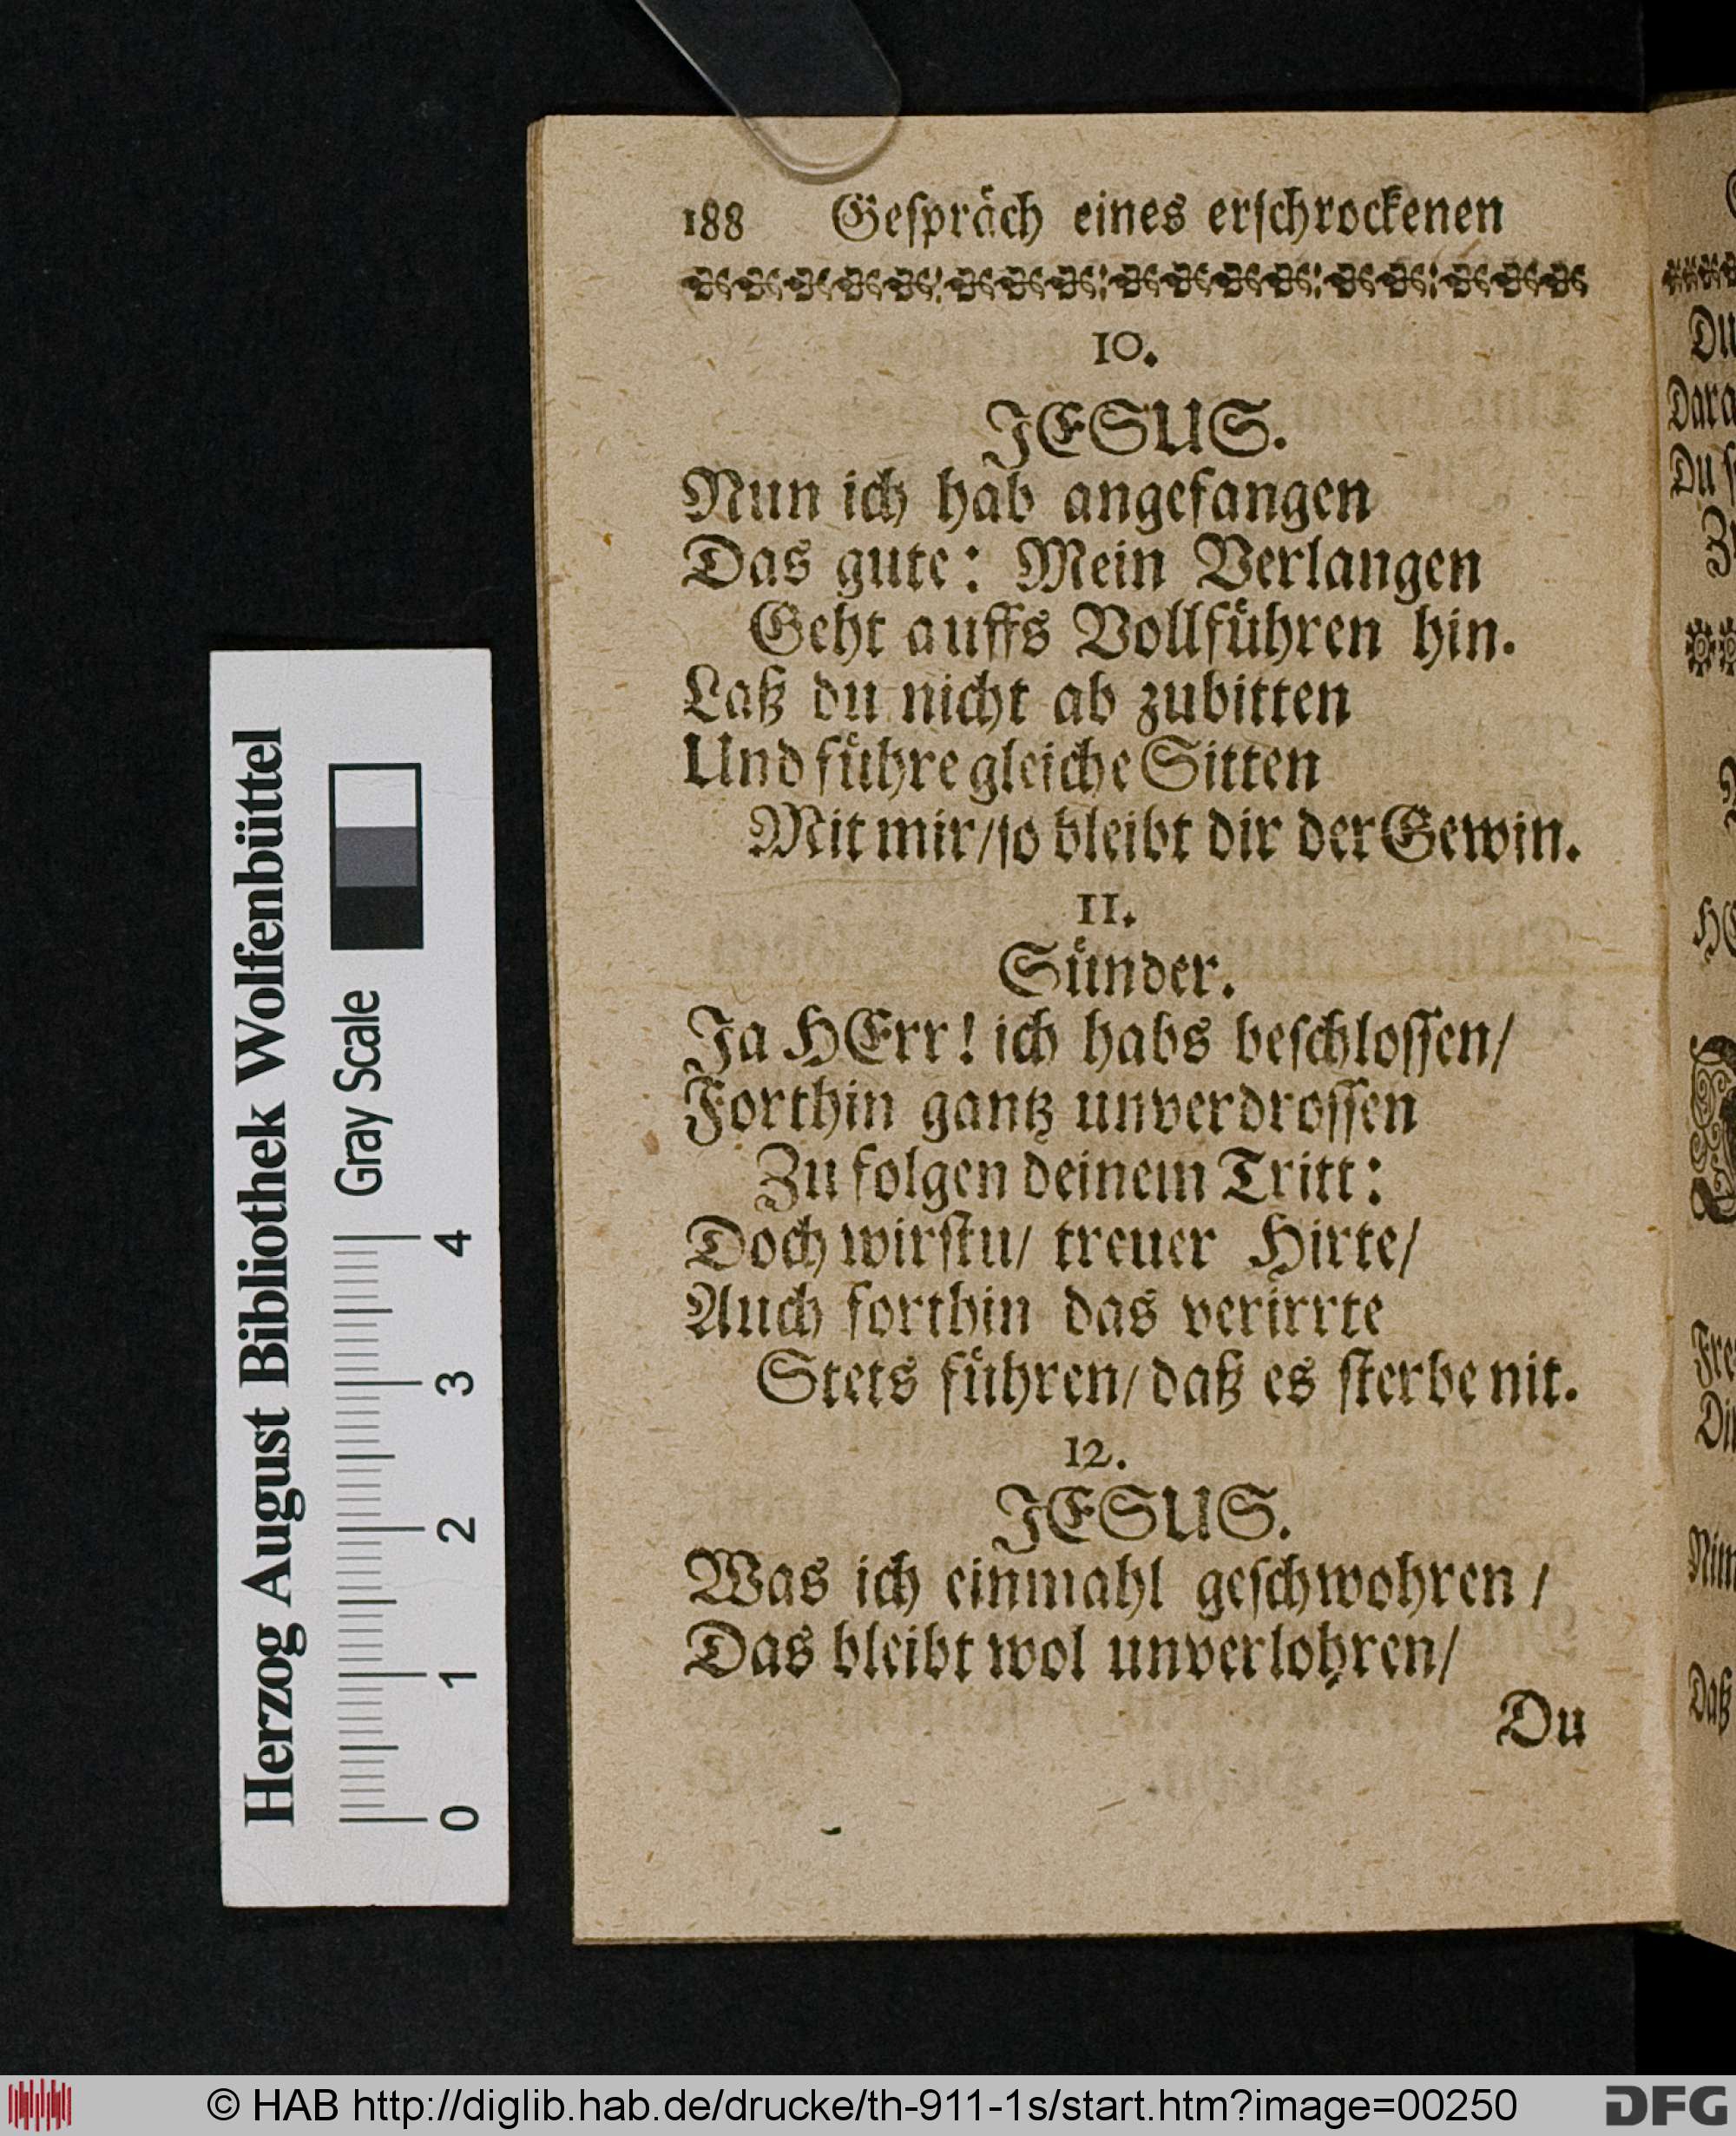 188 Gespräch eines erschrockenen
10.
JESUS.
Nun ich hab angefangen
Das gute: Mein Verlangen
Geht auffs Vollführen hin.
Laß du nicht ab zubitten
Und führe gleiche Sitten
Mit mir/ so bleibt dir der Gewin.
11.
Sünder.
Ja HErr! ich habs beschlossen/
Forthin gantz unverdrossen
Zu folgen deinem Tritt:
Doch wirstu/ treuer Hirte/
Auch forthin das verirrte
Stets führen/ daß es sterbe nit.
12.
JESUS.
Was ich einmahl geschwohren /
Das bleibt wol unverlohren/
Du
Herzog August Bibliothek Wolfenbüttel
Gray Scale
0 1 2 3 4
© HAB http://diglib.hab.de/drucke/th-911-1s/start.htm?image=00250
DFG